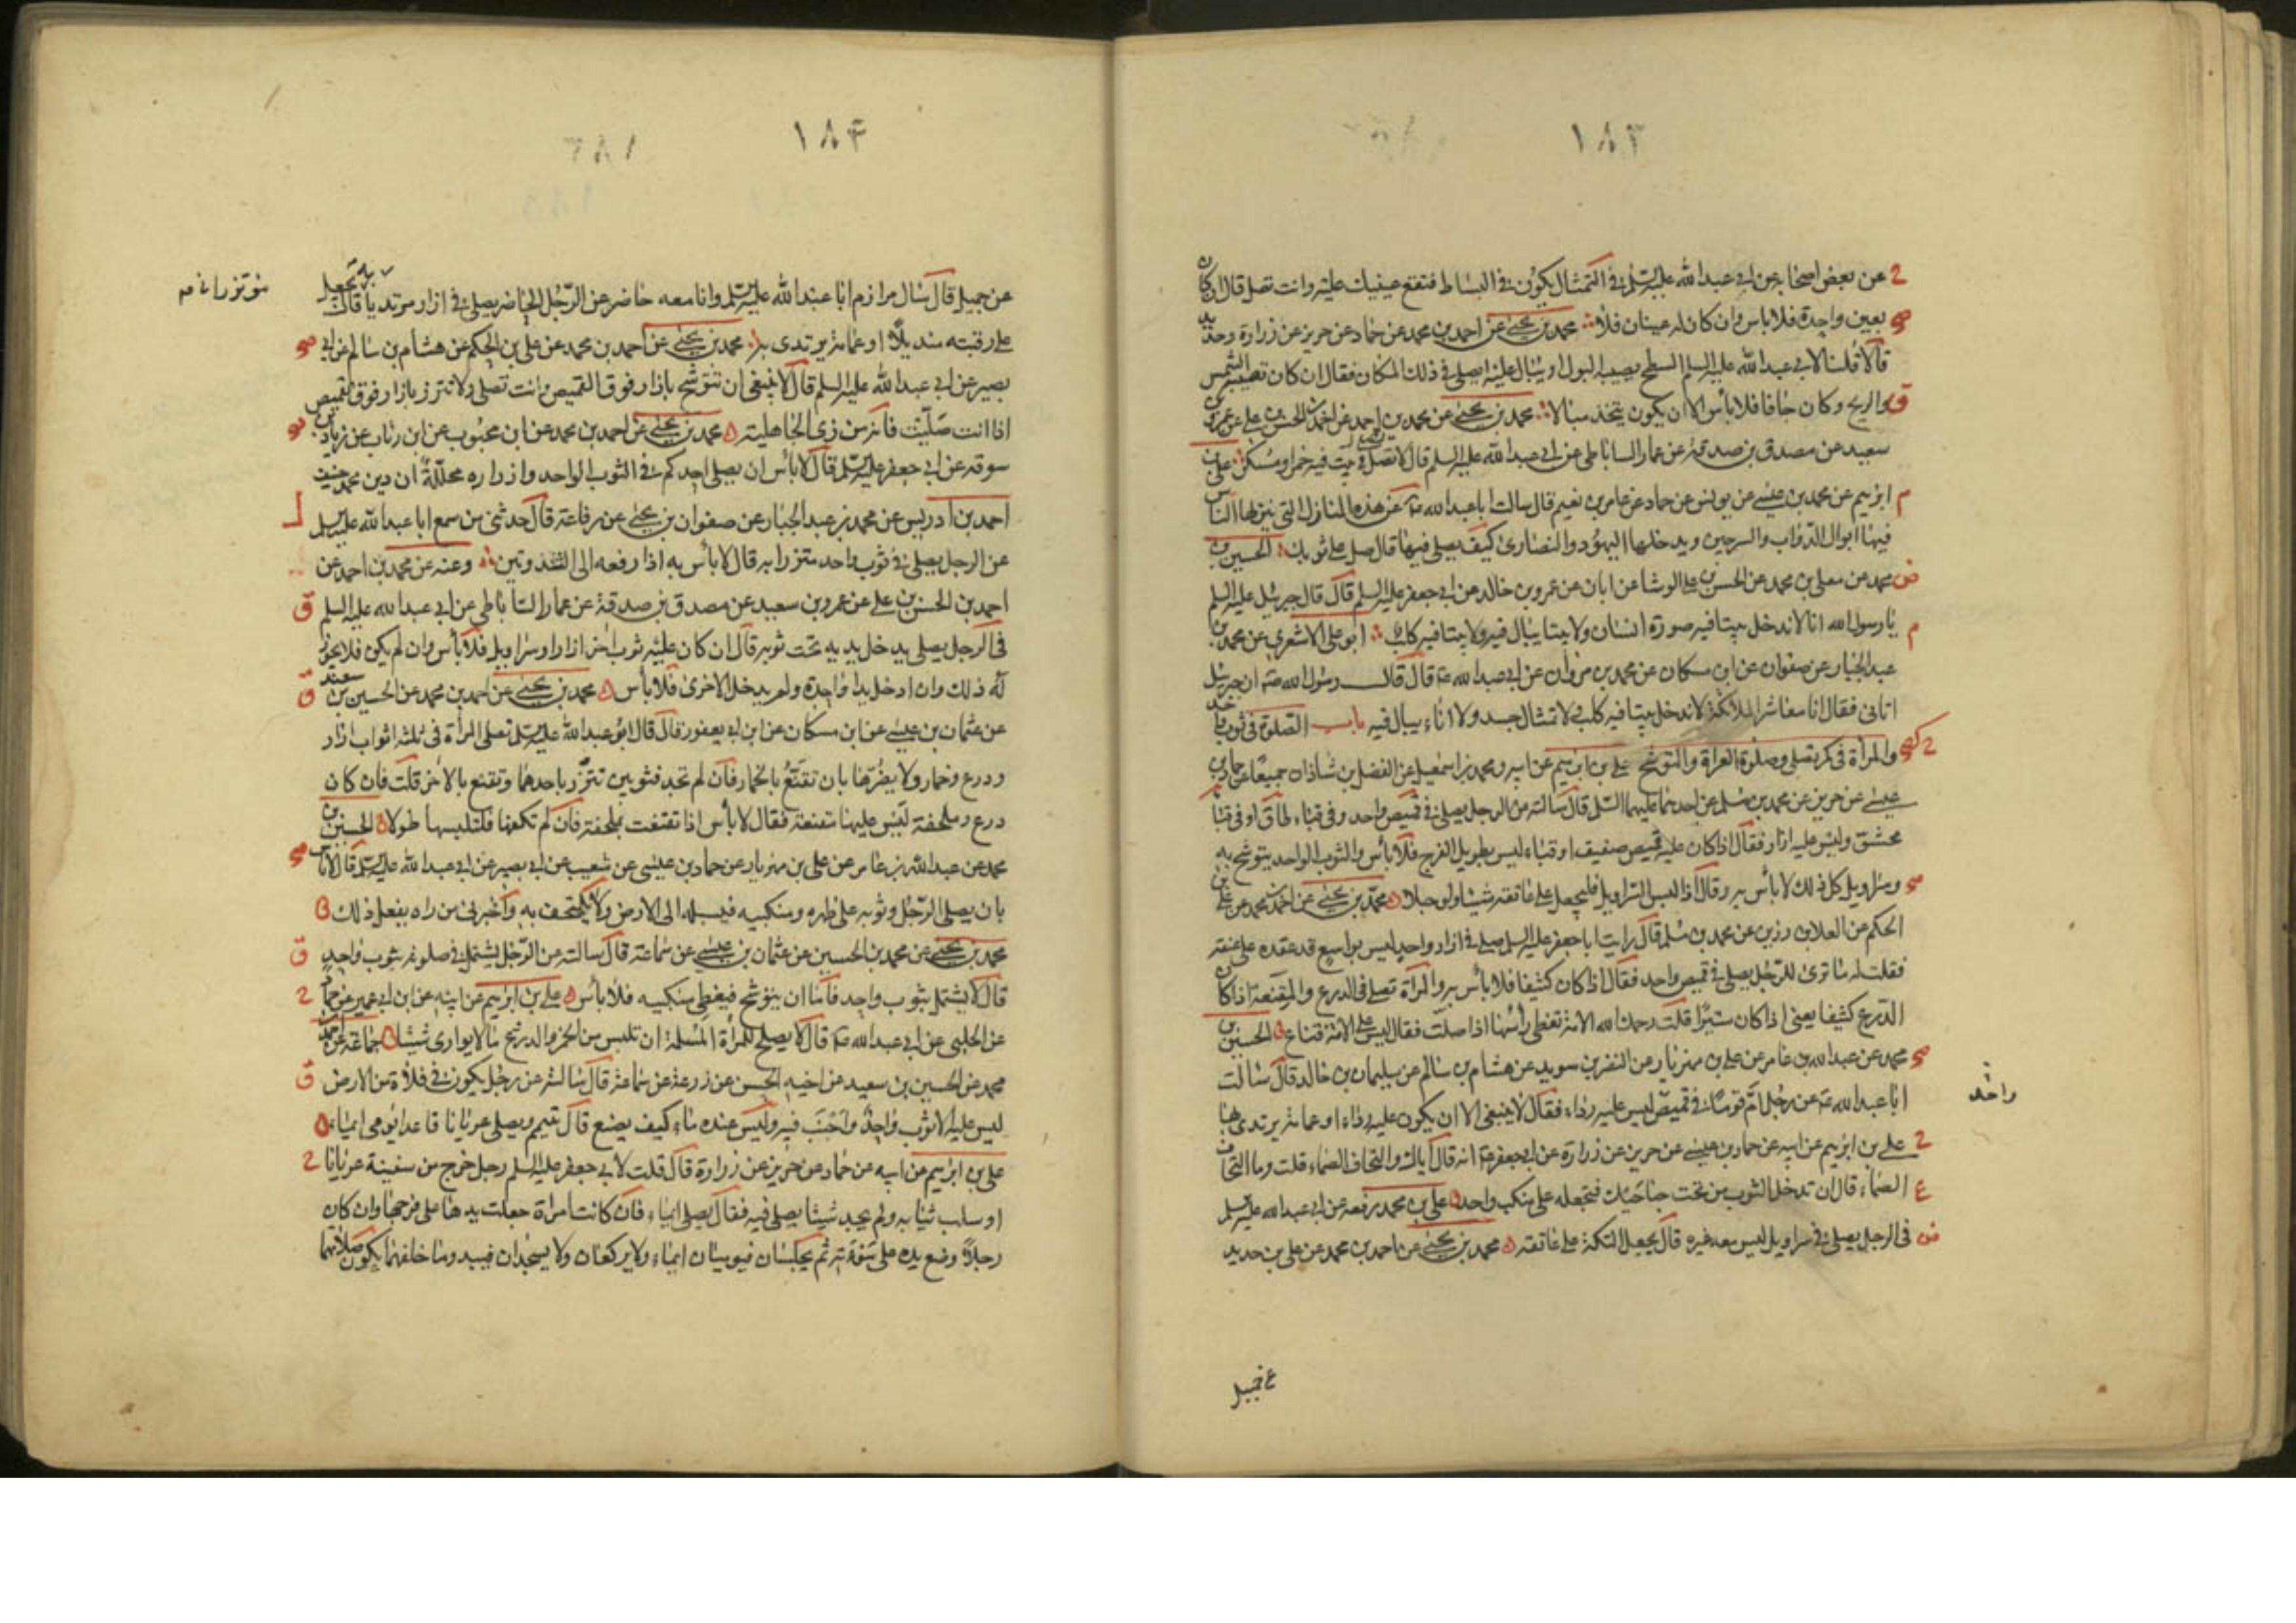 ١٨٣
عن بعض اصحابه عن ابي عبد الله عليه السلم في التمثال يكون في البساط فتقع عينيك عليه وانت تصلي قال ان كان
بعين واحدة فلا باس وان كان له عينان فلا محمد بن يحيى عن احمد بن محمد عن حماد عن حريز عن زرارة وحديد
قالا قلنا لابي عبد الله عليه السلم السطح يصيبه البول او يبال عليه ايصلي في ذلك المكان فقال ان كان تصيبه الشمس
والريح وكان جافا فلا بأس الا ان يكون يتخذ مبالا محمد بن يحيى عن محمد بن احمد عن احمد بن الحسن بن علي عن عمرو بن
سعيد عن مصدق بن صدقة عن عمار الساباطي عن ابي عبد الله عليه السلم قال لا تصل في بيت فيه خمر او مسكر علي بن
ابرهيم عن محمد بن عيسى عن يونس عن حماد عن عامر بن نعيم قال سالت ابا عبد الله ع عن هذه المنازل التي ينزلها الناس
فيها ابوال الدواب والسرجين ويدخلها اليهود والنصارى كيف يصلي فيها قال صل على ثوبك الحسين بن
محمد عن معلى بن محمد عن الحسن بن علي الوشا عن ابان عن عمرو بن خالد عن ابي جعفر عليه السلم قال قال جبرئيل عليه السلم
يا رسول الله انا لا ندخل بيتا فيه صورة انسان ولا بيتا يبال فيه ولا بيتا فيه كلب ابو علي الاشعري عن محمد بن
عبد الجبار عن صفوان عن ابن مسكان عن محمد بن مروان عن ابي عبد الله ع قال قال رسول الله ص ان جبرئيل
اتاني فقال انا معاشر الملائكة لا ندخل بيتا فيه كلب ولا تمثال جسد ولا اناء يبال فيه باب الصلوة في ثوب واحد
والمرأة في كم تصلي وصلوة العراة والتوشح علي بن ابرهيم عن ابيه ومحمد بن اسمعيل عن الفضل بن شاذان جميعا عن حماد بن
عيسى عن حريز عن محمد بن مسلم عن احدهما عليهما السلم قال سالته عن الرجل يصلي في قميص واحد وفي قباء طاق او في قبا
محشو وليس عليه ازار فقال اذا كان عليه قميص صفيق او قباء ليس بطويل الفرج فلا بأس والثوب الواحد يتوشح به
وسراويل كل ذلك لا بأس به وقال اذا لبس السراويل فليجعل على عاتقه شيئا ولو حبلا محمد بن يحيى عن احمد بن محمد عن علي بن
الحكم عن العلا بن رزين عن محمد بن مسلم قال رايت ابا جعفر عليه السلم صلى في ازار واحد ليس بواسع قد عقده على عنقه
فقلت له ما ترى للرجل يصلي في قميص واحد فقال اذا كان كثيفا فلا بأس به والمرأة تصلي في الدرع والمقنعة اذا كان
الدرع كثيفا يعني اذا كان ستيرا قلت رحمك الله الامة تغطي رأسها اذا صلت فقال ليس على الامة قناع الحسين بن
محمد عن عبد الله بن عامر عن علي بن مهزيار عن النضر بن سويد عن هشام بن سالم عن سليمان بن خالد قال سالت
ابا عبد الله ع عن رجل ام قوما في قميص ليس عليه رداء فقال لا ينبغي الا ان يكون عليه رداء او عمامة يرتدي بها
واحد
علي بن ابرهيم عن ابيه عن حماد بن عيسى عن حريز عن زرارة عن ابي جعفر ع انه قال اياك والتحاف الصماء قلت وما التحاف
الصماء قال ان تدخل الثوب من تحت جناحيك فتجعله على منكب واحد علي بن محمد رفعه عن ابي عبد الله عليه السلم
في الرجل يصلي في سراويل ليس معه غيره قال يجعل التكة على عاتقه محمد بن يحيى عن احمد بن محمد عن علي بن حديد
عن جميل
١٨۴
عن جميل قال سال مرازم ابا عبد الله عليه السلم وانا معه حاضر عن الرجل الحاضر يصلي في ازار مرتديا به قال يجعل
على رقبته منديلا او عمامة يرتدي به محمد بن يحيى عن احمد بن محمد عن علي بن الحكم عن هشام بن سالم عن ابي
بصير عن ابي عبد الله عليه السلم قال لا ينبغي ان تتوشح بازار فوق القميص وانت تصلي ولا تتزر بازار فوق القميص
اذا انت صليت فانه من زي الجاهلية محمد بن يحيى عن احمد بن محمد عن ابن محبوب عن ابن رئاب عن زياد بن
سوقة عن ابي جعفر عليه السلم قال لا بأس ان يصلي احدكم في الثوب الواحد وازراره محللة ان دين محمد حنيف
احمد بن ادريس عن محمد بن عبد الجبار عن صفوان بن يحيى عن رفاعة قال حدثني من سمع ابا عبد الله عليه السلم
عن الرجل يصلي في ثوب واحد متزرا به قال لا بأس به اذا رفعه الى الثندوتين وعنه عن محمد بن احمد عن
احمد بن الحسن بن علي عن عمرو بن سعيد عن مصدق بن صدقة عن عمار الساباطي عن ابي عبد الله عليه السلم
في الرجل يصلي يدخل يديه تحت ثوبه قال ان كان عليه ثوب اخر ازار او سراويل فلا بأس وان لم يكن فلا يجوز
له ذلك وان ادخل يدا واحدة ولم يدخل الاخرى فلا بأس محمد بن يحيى عن احمد بن محمد عن الحسين بن سعيد
عن عثمان بن عيسى عن ابن مسكان عن ابن ابي يعفور قال قال ابو عبد الله عليه السلم تصلي المرأة في ثلثة اثواب ازار
ودرع وخمار ولا يضرها بان تقنع بالخمار فان لم تجد فثوبين تتزر باحدهما وتقنع بالاخر قلت فان كان
درع وملحفة ليس عليها مقنعة فقال لا بأس اذا تقنعت بملحفة فان لم تكفها فلتلبسها طولا الحسين بن
محمد عن عبد الله بن عامر عن علي بن مهزيار عن حماد بن عيسى عن شعيب عن ابي بصير عن ابي عبد الله عليه السلم قال لا باس
بان يصلي الرجل وثوبه على ظهره ومنكبيه فيسبله الى الارض ولا يلتحف به واخبرني من راه يفعل ذلك
محمد بن يحيى عن محمد بن الحسين عن عثمان بن عيسى عن سماعة قال سالته عن الرجل يشتمل في صلوته بثوب واحد
قال لا يشتمل بثوب واحد فاما ان يتوشح فيغطي منكبيه فلا بأس علي بن ابرهيم عن ابيه عن ابن ابي عمير عن حماد
عن الحلبي عن ابي عبد الله ع قال لا يصلح للمرأة المسلمة ان تلبس من الخمر والدروع ما لا يواري شيئا جماعة عن احمد بن
محمد عن الحسين بن سعيد عن اخيه الحسن عن زرعة عن سماعة قال سالته عن رجل يكون في فلاة من الارض
ليس عليه الا ثوب واحد واجنب فيه وليس عنده ماء كيف يصنع قال تيمم ويصلي عريانا قاعدا يومي ايماء
علي بن ابرهيم عن ابيه عن حماد عن حريز عن زرارة قال قلت لابي جعفر عليه السلم رجل خرج من سفينة عريانا
او سلب ثيابه ولم يجد شيئا يصلي فيه فقال يصلي ايماء فان كانت امراة جعلت يدها على فرجها وان كان
رجلا وضع يده على سوءته ثم يجلسان فيوميان ايماء ولا يركعان ولا يسجدان فيبدو ما خلفهما تكون صلاتهما